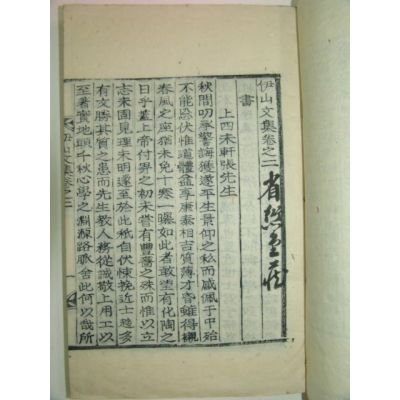 伊山文集卷之二
省
堂藏
書
上四未軒張先生
秋間叨承警誨獲遂平生景仰之私而感佩于中殆
不能忘伏惟道體益享康泰相吉質薄才奢雖得襯
春風之座猶未免十寒一曝如此者敢望有化陶之
日乎蓋上帝付畀之初未嘗有豐嗇之殊而惟以立
志未固見理未明遂至於此秪自伏悚挽近士趨多
有文勝其質之患而先生教人務從誠敬上用工以
至著實地頭千秋心學之淵源路脈舍此何以哉所
伊山文集卷之二
一